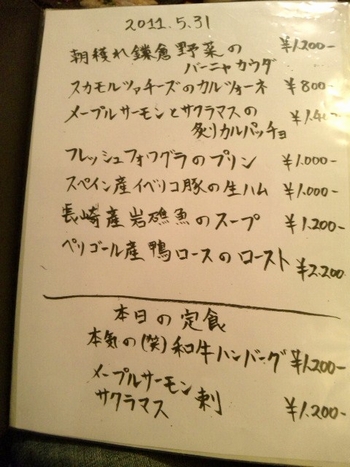 2011.5.31
朝穫れ鎌倉野菜の ¥1.200-
バーニャカウダ
スカモルツァチーズのカルツォーネ ¥800-
メープルサーモンとサクラマスの ¥1.40
炙りカルパッチョ
フレッシュフォワグラのプリン ¥1.000-
スペイン産イベリコ豚の生ハム ¥1.000-
長崎産岩礁魚のスープ ¥1.200-
ペリゴール産鴨ロースのロースト ¥2.200
本日の定食
本気の(笑)和牛ハンバーグ ¥1.200-
メープルサーモン
サクラマス 刺 ¥1.200-